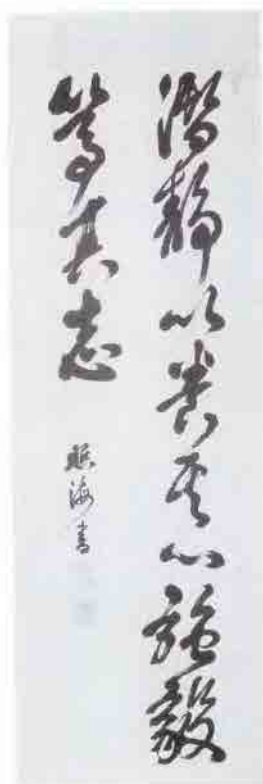 潛靜以養其心強毅
篤其志
海書